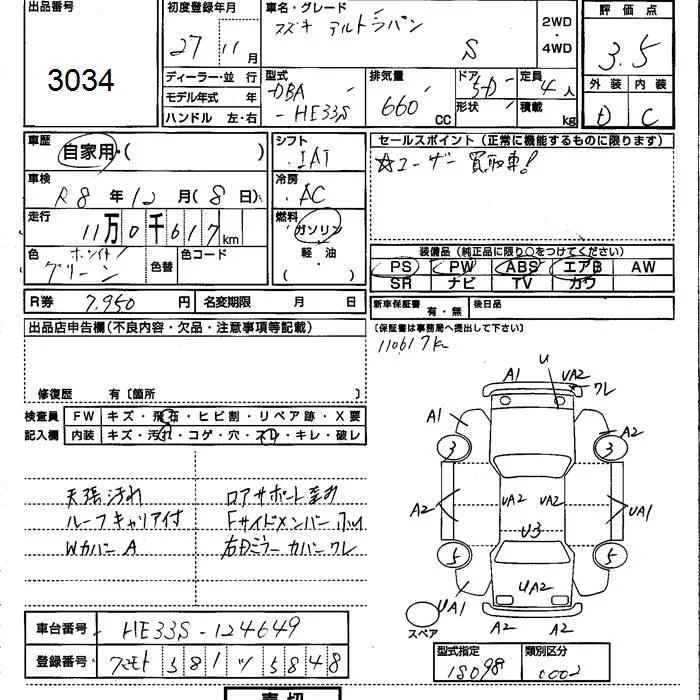 出品番号
3034
初度登録年月
27 11月
車名・グレード
スズキ アルトラパン
S
2WD
・
4WD
評価点
3.5
外装 内装
D C
ディーラー・並 行
モデル年式 年
ハンドル 左・右
型式
DBA
- HE33S
排気量
660 CC
ドア 5D
形状
定員 4人
積載 kg
車歴
自家用・( )
シフト
IAT
セールスポイント(正常に機能するものに限ります)
☆ユーザー買取車!
車検
R8年12月(8日)
冷房
AC
走行
11万0千617km
燃料
ガソリン
・
軽・油
( )
色 ホワイト/
グリーン
色替
色コード
装備品(純正品に限り○をつけてください)
PS PW ABS エアB AW
SR ナビ TV カワ
R券 7,950円
名変期限 月 日
新車保証書 有・無
後日品
(保証書は事務局へ提出して下さい)
110617km
出品店申告欄(不良内容・欠品・注意事項等記載)
修復歴 有〔箇所 〕
検査員
記入欄
FW キズ・飛石・ヒビ割・リペア跡・X要
内装 キズ・汚れ・コゲ・穴・スレ・キレ・破レ
天張汚れ
ルーフキャリア付
Wカバー A
ロアサポート歪み
右Dミラーカバーワレ
U
A1
UA2
ワレ
A1
A2
3
3
A2
UA2
UA2
UA1
U3
5
5
UA2
UA1
A2
A2
A2
スペア
車台番号 HE33S-124649
登録番号 581 ツ 5848
型式指定 類別区分
18098 0002
売切